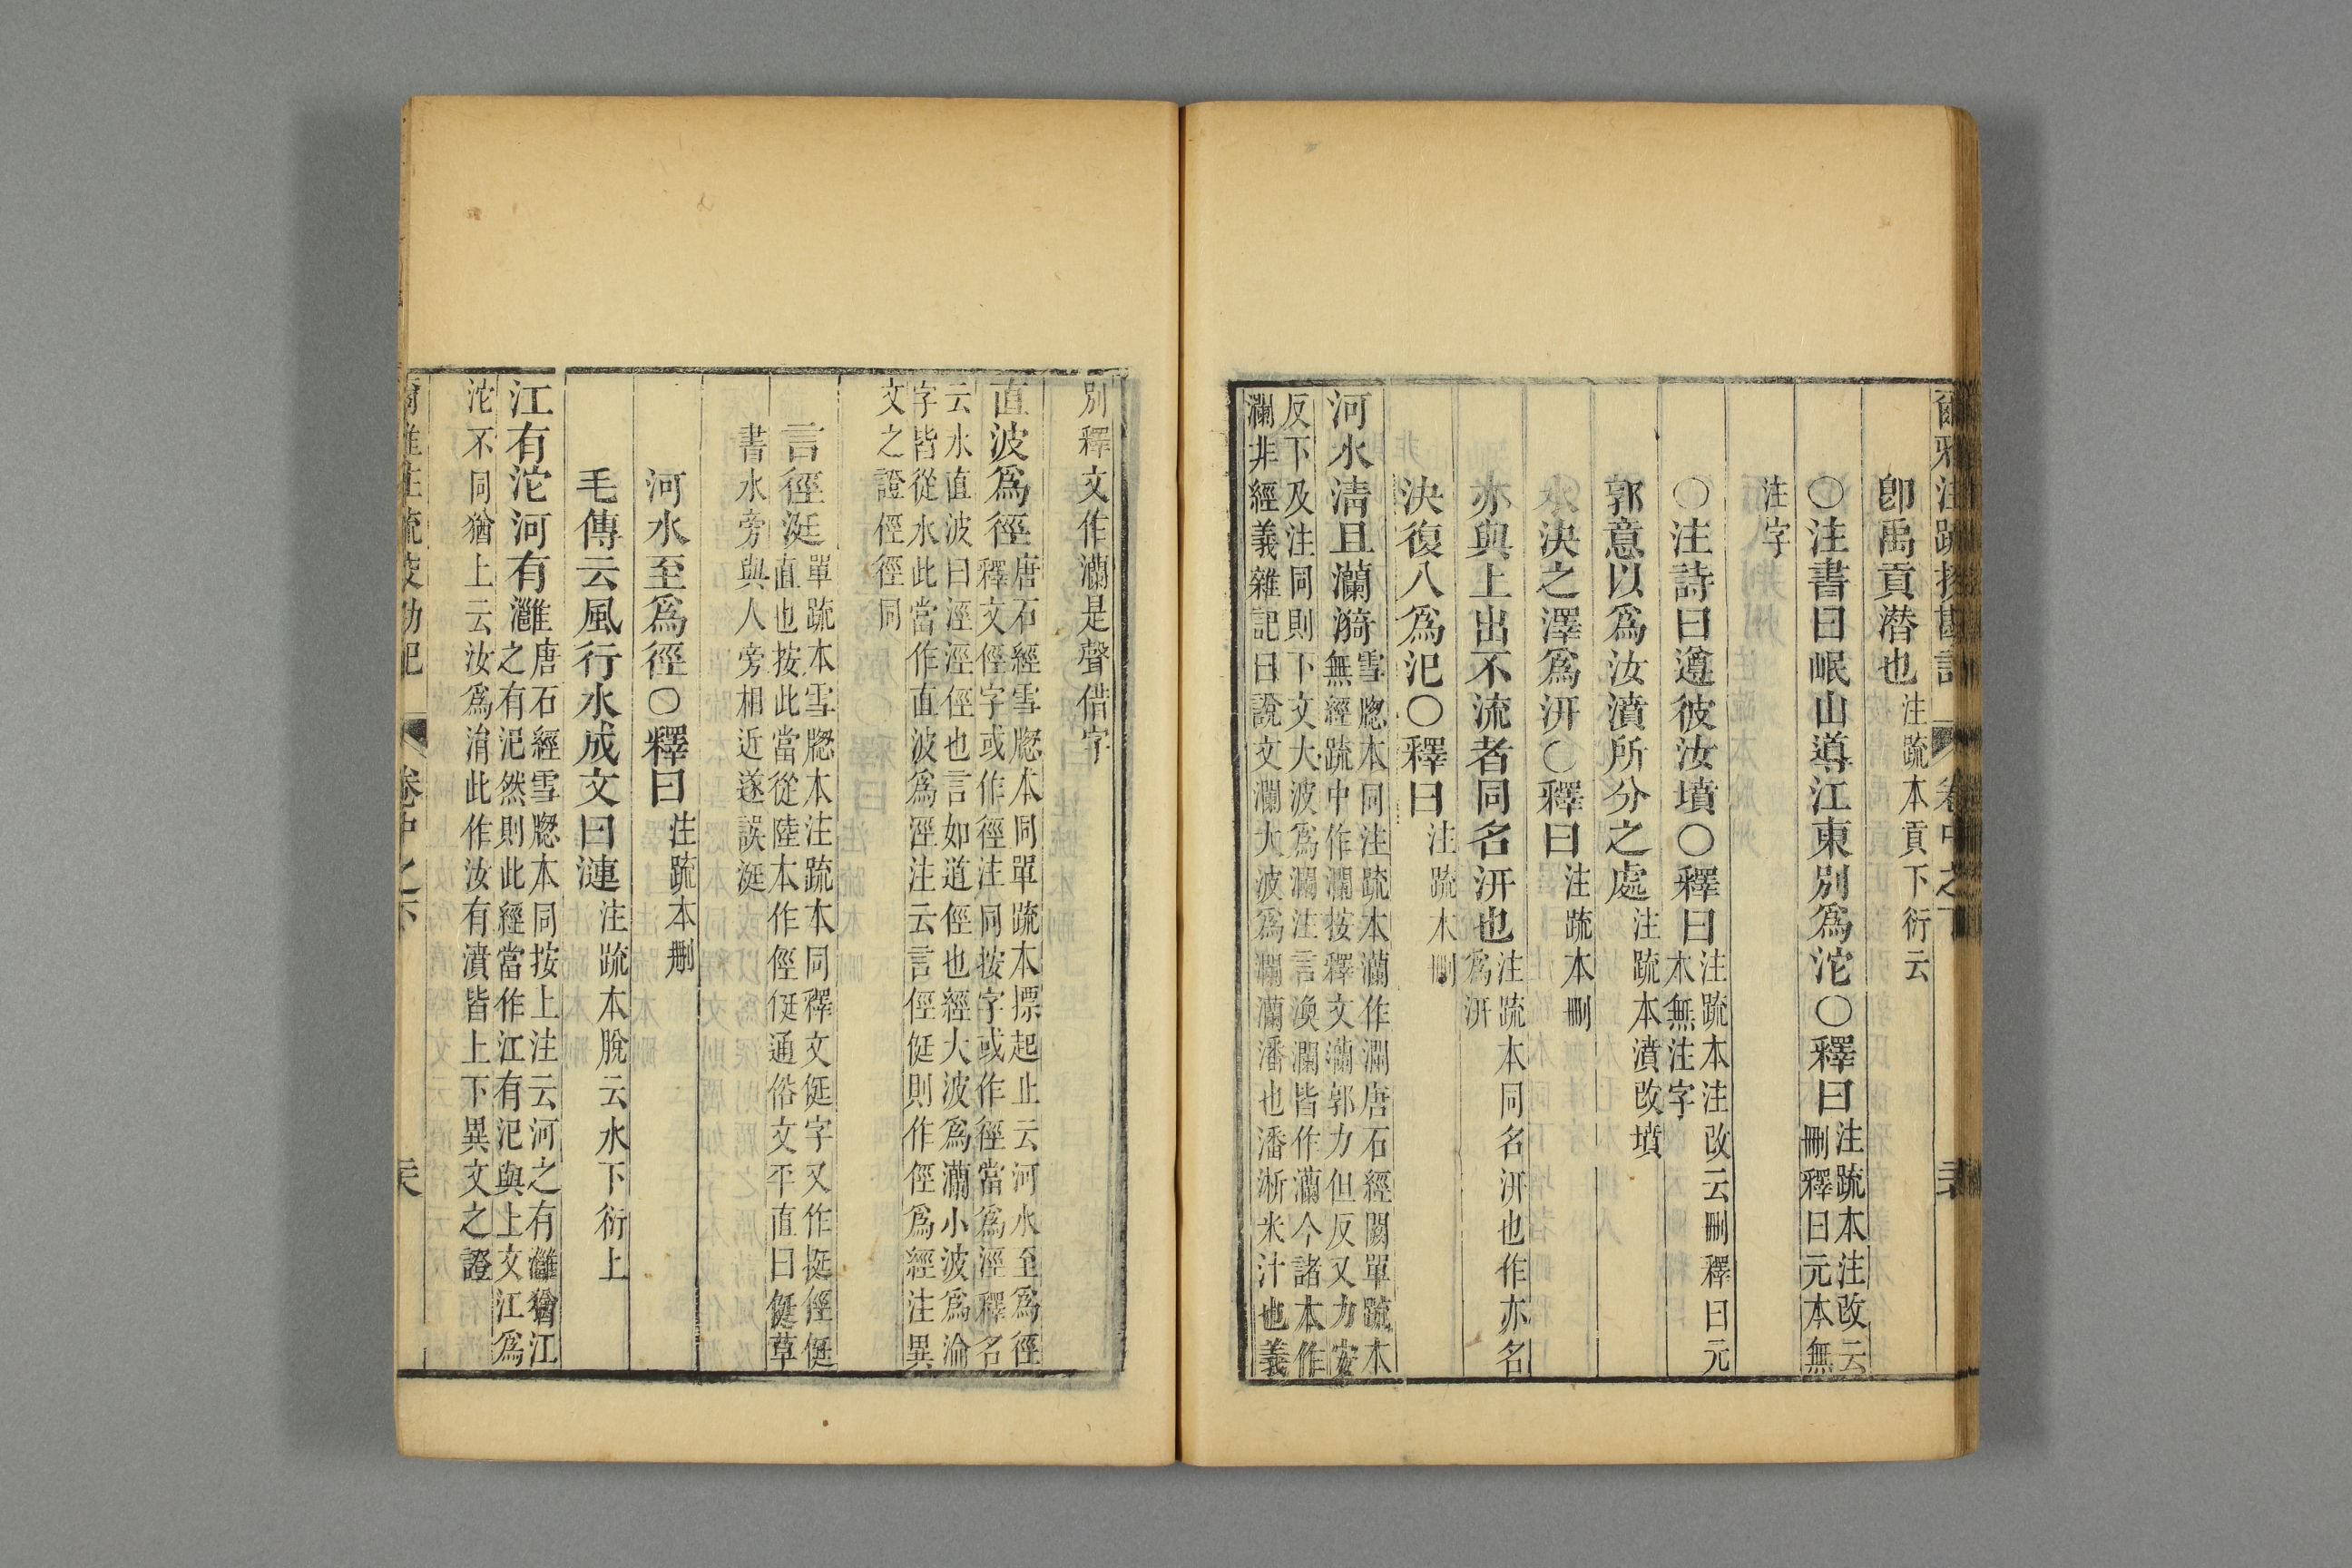 爾雅注疏挍勘記　卷中之下
卽禹貢潛也注疏本貢下衍云
○注書曰岷山導江東別爲沱○釋曰注疏本注改云
刪釋曰元本無
注字
○注詩曰遵彼汝墳○釋曰注疏本注改云刪釋曰元
本無注字
郭意以爲汝濆所分之處注疏本濆改墳
水決之澤爲汧○釋曰注疏本刪
亦與上出不流者同名汧也注疏本同名汧也作亦名
爲汧
決復入爲汜○釋曰注疏本刪
河水淸且灡漪雪牕本同注疏本灡作瀾唐石經闕單疏本
無經疏中作瀾按釋文灡郭力但反又力安
反下及注同則下文大波爲瀾注言渙瀾皆作灡今諸本作
瀾非經義雜記曰說文瀾大波爲瀾灡潘也潘淅米汁也義
別釋文作灡是聲借字
直波爲徑唐石經雪牕本同單疏本摽起止云河水至爲徑
釋文俓字或作徑注同按字或作徑當爲涇釋名
云水直波曰涇涇俓也言如道俓也經大波爲灡小波爲淪
字皆從水此當作直波爲涇注云言俓侹則作俓爲經注異
文之證俓徑同
言徑涏單疏本雪牕本注疏本同釋文侹字又作挺俓侹
直也按此當從陸本作俓侹通俗文平直曰侹草
書水旁與人旁相近遂誤涏
河水至爲徑○釋曰注疏本刪
毛傳云風行水成文曰漣注疏本脫云水下衍上
江有沱河有灉唐石經雪牕本同按上注云河之有灉猶江
之有汜然則此經當作江有汜與上文江爲
沱不同猶上云汝爲涓此作汝有濆皆上下異文之證
爾雅注疏挍勘記　卷中之下